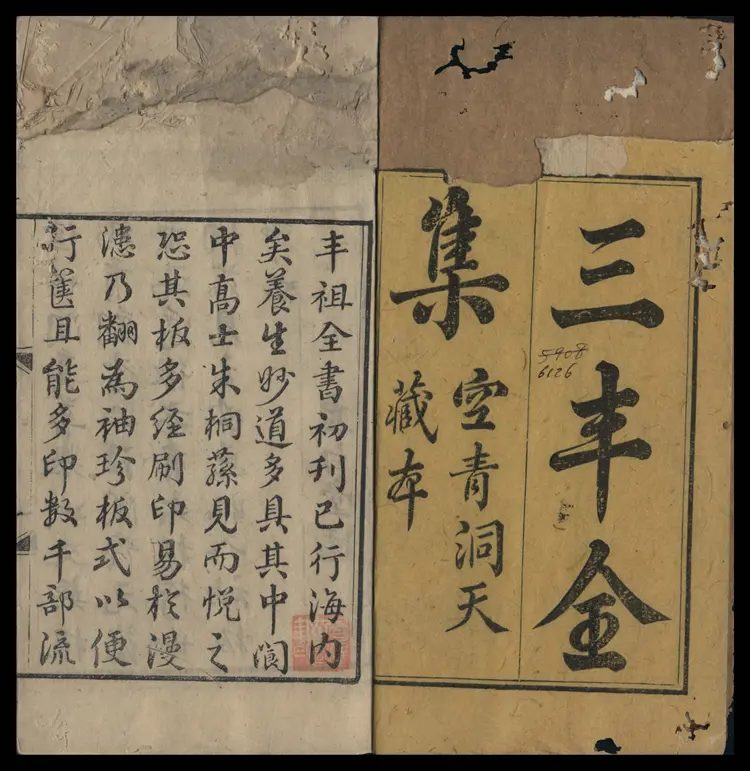 三丰全
集
空青洞天
藏本
5908
6126
丰祖全書初刊已行海内
矣養生妙道多具其中閬
中高士朱桐蓀見而悅之
恐其板多经刷印易於漫
漶乃翻為袖珍板式以便
行匧且能多印数千部流